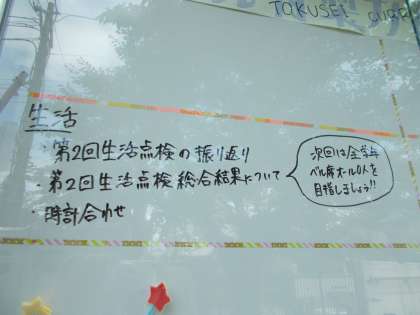 TOKUSEI
生活
・第2回生活点検の振り返り
・第2回生活点検総合結果について
・時計合わせ
次回は全学年
ベル席オール0人を
目指しましょう!!